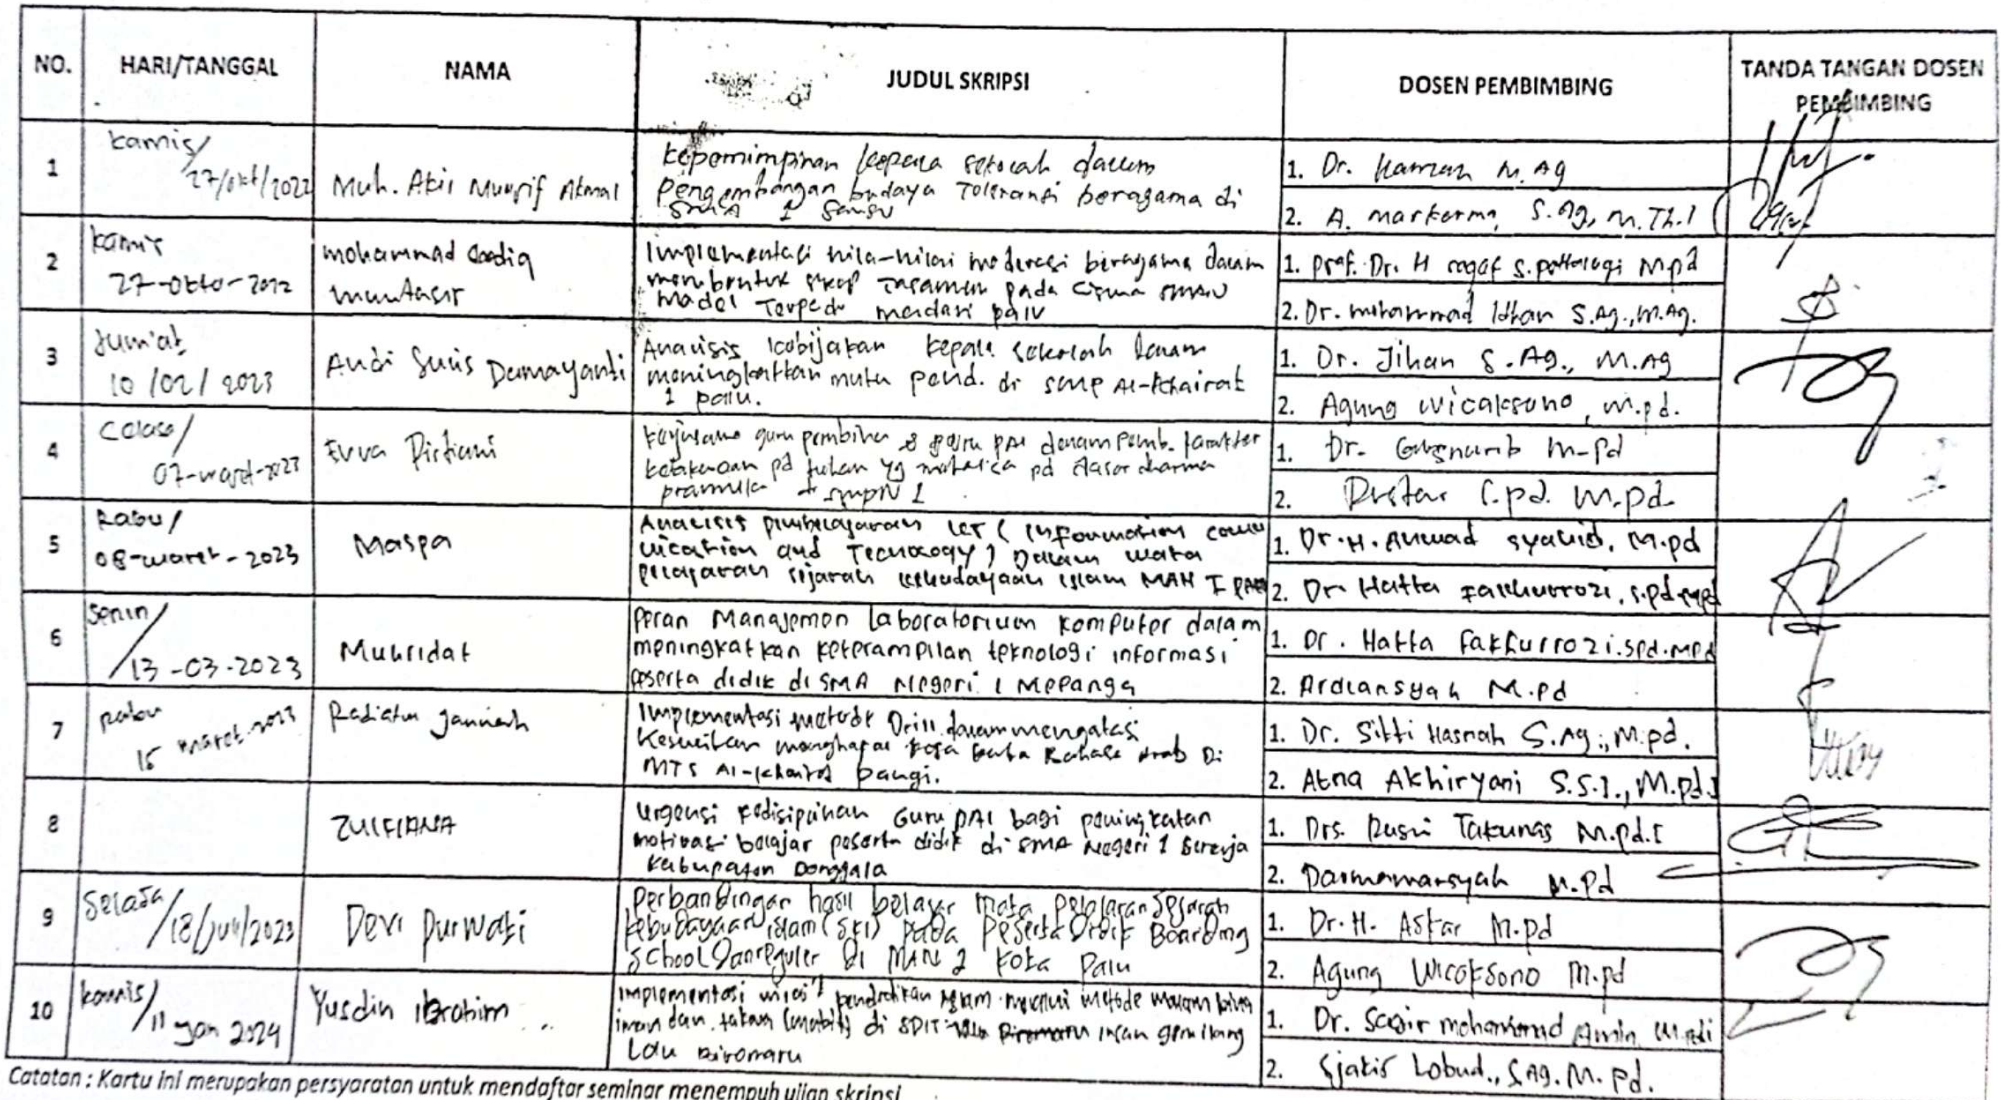 NO. HARI/TANGGAL NAMA JUDUL SKRIPSI DOSEN PEMBIMBING TANDA TANGAN DOSEN
PEMBIMBING
1 Kamis/
27/okt/2022
Muh. Akmal
Kepemimpinan kepala sekolah dalam
pengembangan budaya Toleransi beragama di
SMA 1
1. Dr. Hamzah M.Ag
2. A. Markarma, S.Ag, M.Th.I
2 Kamis
27-Okto-2022
mohammad
muntasir
Implementasi nilai-nilai moderasi beragama dalam
membentuk sikap Tasamuh pada
Model Terpadu madani palu
1. Prof. Dr. H M.pd
2. Dr. Mohammad Idhan S.Ag., M.Ag.
3 Jum'at
10/02/2023
Andi Sucis Damayanti
Analisis kebijakan kepala sekolah dalam
meningkatkan mutu pend. di SMP Al-Khairat
1 palu.
1. Dr. Jihan S.Ag., M.Ag
2. Agung Wicaksono, M.pd.
4
07-maret-2023
guru pembina & guru PAI dalam pemb. karakter
pd tuhan yg pd dasar dharma
pramuka SMPN 1
1. Dr. M-Pd
2. S.pd. M.pd.
5 Rabu/
08-maret-2023
Maspa
Analisis pembelajaran ICT (Information commu
nication and Tecnology) Dalam mata
pelajaran sejarah kebudayaan islam MAN I
1. Dr. H. Ahmad syahid, M.pd
2. Dr Hatta Fakhurrozi, S.pd.M.pd
6 Senin/
13-03-2023
Muhridat
Peran Manajemen laboratorium komputer dalam
meningkatkan keterampilan teknologi informasi
Peserta didik di SMA Negeri 1 Mepanga
1. Dr. Hatta Fakhurrozi.Spd.Mpd
2. Ardiansyah M.Pd
7 Rabu
15 maret 2023
Radiatun Jannah
Implementasi metode Drill dalam mengatasi
Kesulitan menghafal kosa kata Bahasa Arab Di
MTS Al-khairat
1. Dr. Sitti Hasnah S.Ag., M.pd.
2. Atna Akhiryani S.S.I., M.Pd.I
8
ZULFIANA
Urgensi Kedisiplinan Guru PAI bagi peningkatan
motivasi belajar peserta didik di SMA Negeri 1
Kabupaten Donggala
1. Drs. Rusli Takunas M.pd.I
2. Darmawansyah M.Pd
9 Selasa
/18/Juli/2023
Devi Purwati
Perbandingan hasil belajar mata Pelajaran Sejarah
kebudayaan islam (SKI) pada Peserta Didik Boarding
School Dan reguler Di MAN 2 Kota Palu
1. Dr. H. Askar M.pd
2. Agung Wicaksono M.pd
10 kamis/
11 Jan 2024
Yusdin ibrahim
Implementasi pendidikan Islam melalui metode malam bina
iman dan takwa (mabit) di SDIT insan gemilang
Biromaru
1. Dr. Sagir mohammad Amin, M.pdi
2. Sjakir Lobud., S.Ag. M. Pd.
Catatan : Kartu ini merupakan persyaratan untuk mendaftar seminar menempuh ujian skripsi